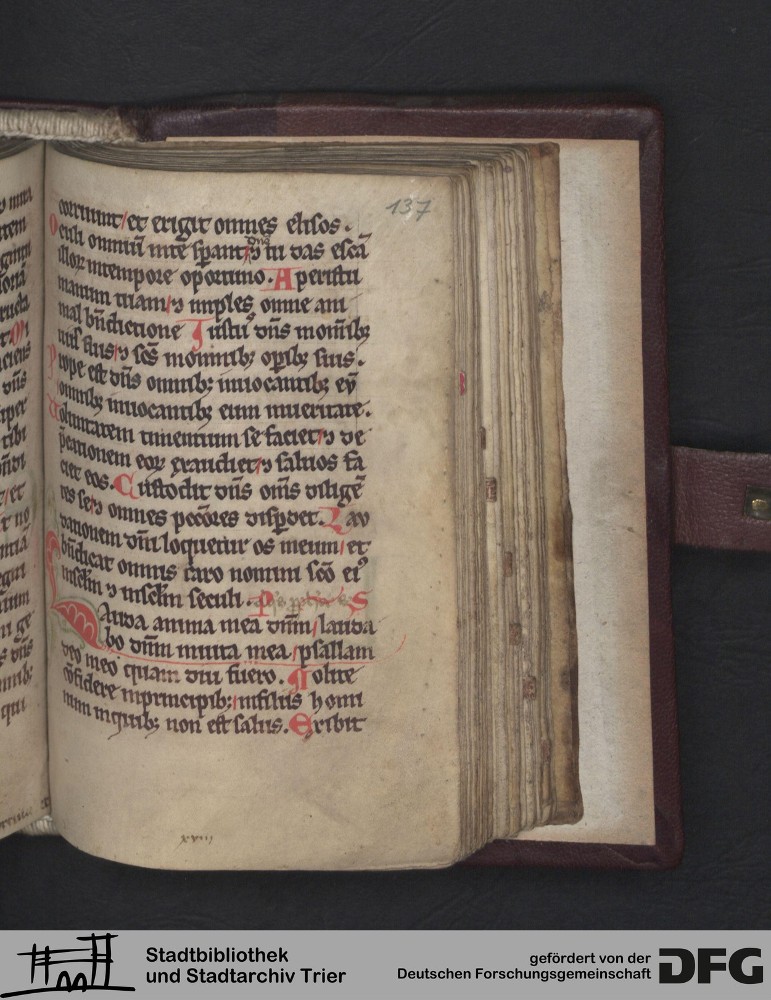 137
corruunt / et erigit omnes elisos.
Oculi omniū inte sperant dn̄e ⁊ tu das escā
illoꝝ intempore oportuno. Aperis tu
manum tuam / ⁊ imples omne ani
mal bn̄dictione Iustꝰ dn̄s in om̄ibꝫ
uiis suis / ⁊ sc̄s in omnibꝫ opibꝫ suis.
Prope est dn̄s omnibꝫ inuocantibꝫ eū
omnibꝫ inuocantibꝫ eum in ueritate.
Voluntatem timentium se faciet / ⁊ de
p̄cationem eoꝝ exaudiet / ⁊ saluos fa
ciet eos. Custodit dn̄s om̄s diligē
tes se / ⁊ omnes pecc̄ores disꝑdet. Lau
dationem dn̄i loquetur os meum / et
bn̄dicat omnis caro nomini sc̄o eiꝰ
inseculm ⁊ inseculm seculi. Ps
Lauda anima mea dn̄m / lauda
bo dn̄m inuita mea / psallam
deo meo quam diu fuero. Nolite
ꝯfidere inprincipibꝫ / infiliis homi
num inquibꝫ non est salus. Exibit
xviii
Stadtbibliothek
und Stadtarchiv Trier
gefördert von der
Deutschen Forschungsgemeinschaft
DFG